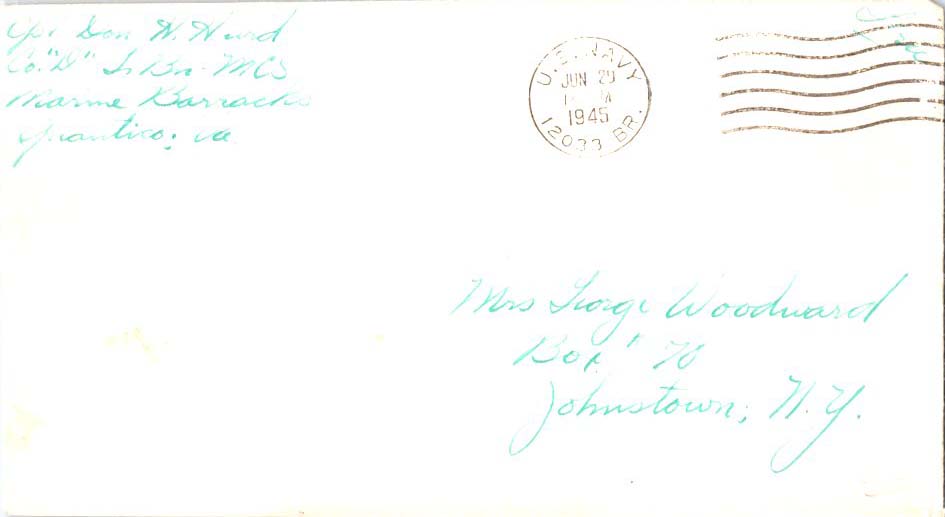 Cpl Don W. Hurd
Co. "D" S. Bn. MCS
Marine Barracks
Quantico, Va
Free
U.S. NAVY
JUN 29
1945
12033 BR.
Mrs George Woodward
Box 70
Johnstown, N.Y.